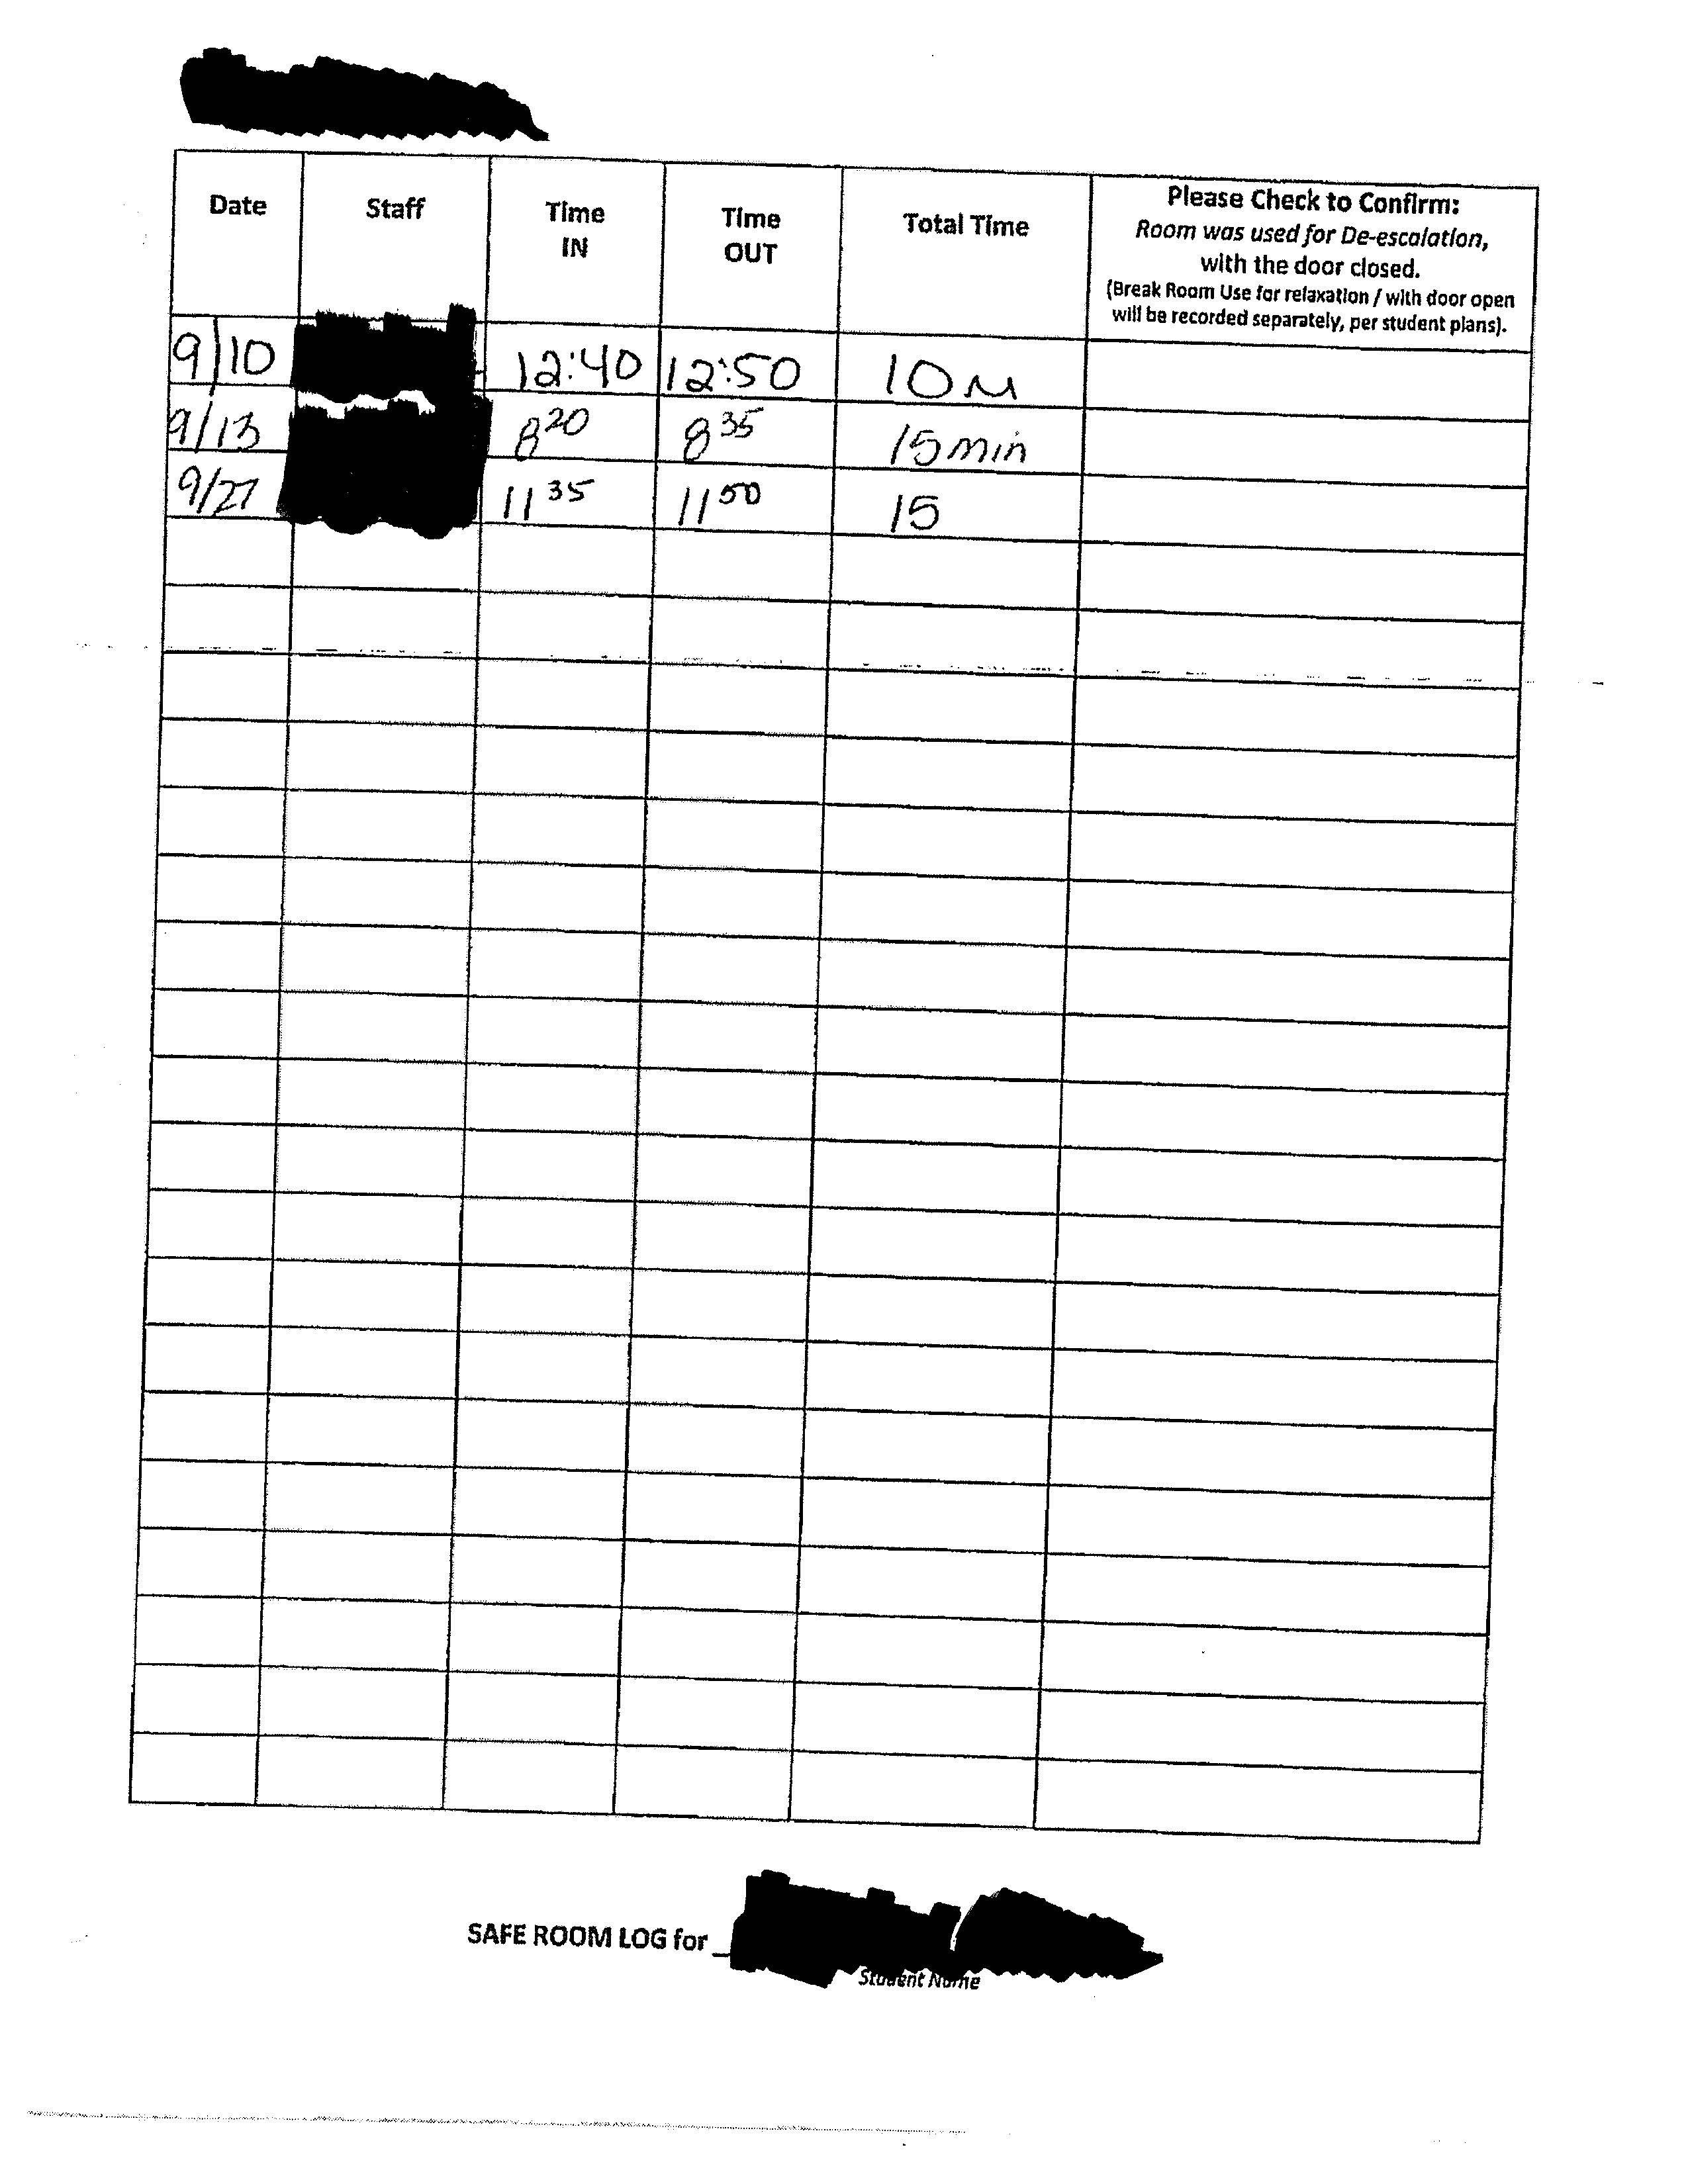 Date Staff Time IN Time OUT Total Time Please Check to Confirm:
Room was used for De-escalation,
with the door closed.
(Break Room Use for relaxation / with door open
will be recorded separately, per student plans).
9/10 12:40 12:50 10 M
9/13 8 20 8 35 15 min
9/27 11 35 11 50 15
SAFE ROOM LOG for
Student Name